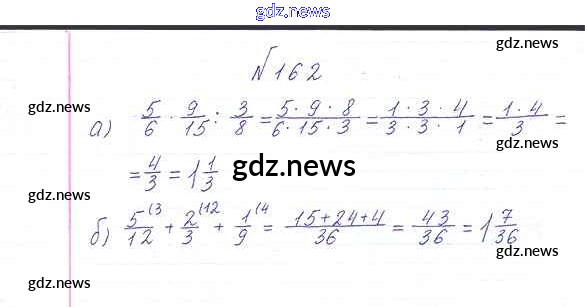 gdz.news
gdz.news
№162
gdz.news
а) 5/6 · 9/15 : 3/8 = 5·9·8/6·15·3 = 1·3·4/3·3·1 = 1·4/3 =
gdz.news
= 4/3 = 1 1/3
gdz.news
gdz.news
gdz.news
б) 5/12 (3 + 2/3 (12 + 1/9 (4 = 15+24+4/36 = 43/36 = 1 7/36
gdz.news
gdz.news